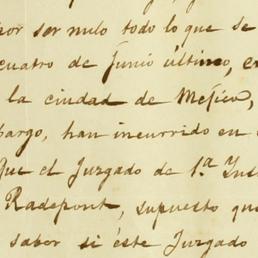 por ser nulo todo lo que se
cuatro de Junio último, en
la ciudad de Mejico,
bargo, han incurrido en
que el Juzgado de 1.ª Ins
Radepont, supuesto que
saber si éste Juzgado